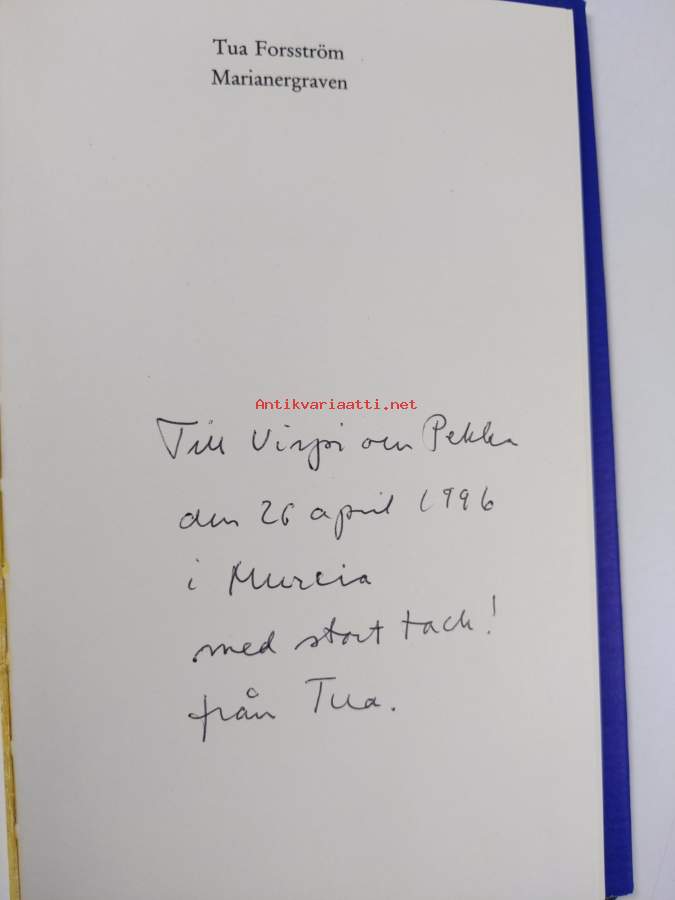 Tua Forsström
Marianergraven
Antikvariaatti.net
Till Virpi och Pekka
den 26 april 1996
i Murcia
med stort tack!
från Tua.